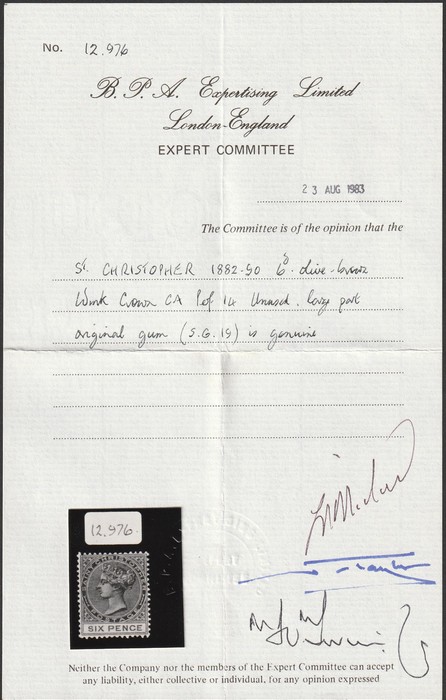 No. 12.976
B. P. A. Expertising Limited
London-England
EXPERT COMMITTEE
23 AUG 1983
The Committee is of the opinion that the
St. CHRISTOPHER 1882-90 6d. olive-brown
Wmk Crown CA Perf 14 Unused, large part
original gum (S.G. 19) is genuine
12.976
SIX PENCE
Neither the Company nor the members of the Expert Committee can accept
any liability, either collective or individual, for any opinion expressed